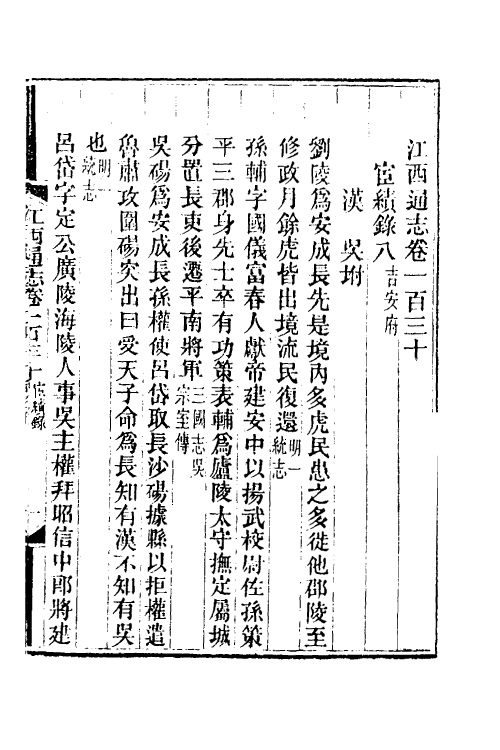 江西通志卷一百三十
宦績錄八吉安府
漢 吳坿
劉陵爲安成長先是境內多虎民患之多徙他郡陵至
修政月餘虎皆出境流民復還明一統志
孫輔字國儀富春人獻帝建安中以揚武校尉佐孫策
平三郡身先士卒有功策表輔爲廬陵太守撫定屬城
分置長吏後遷平南將軍三國志吳宗室傳
吳碭爲安成長孫權使呂岱取長沙碭據縣以拒權遣
魯肅攻圍碭突出曰受天子命爲長知有漢不知有吳
也明一統志
呂岱字定公廣陵海陵人事吳主權拜昭信中郎將建
江西通志卷一百三十 宦績錄